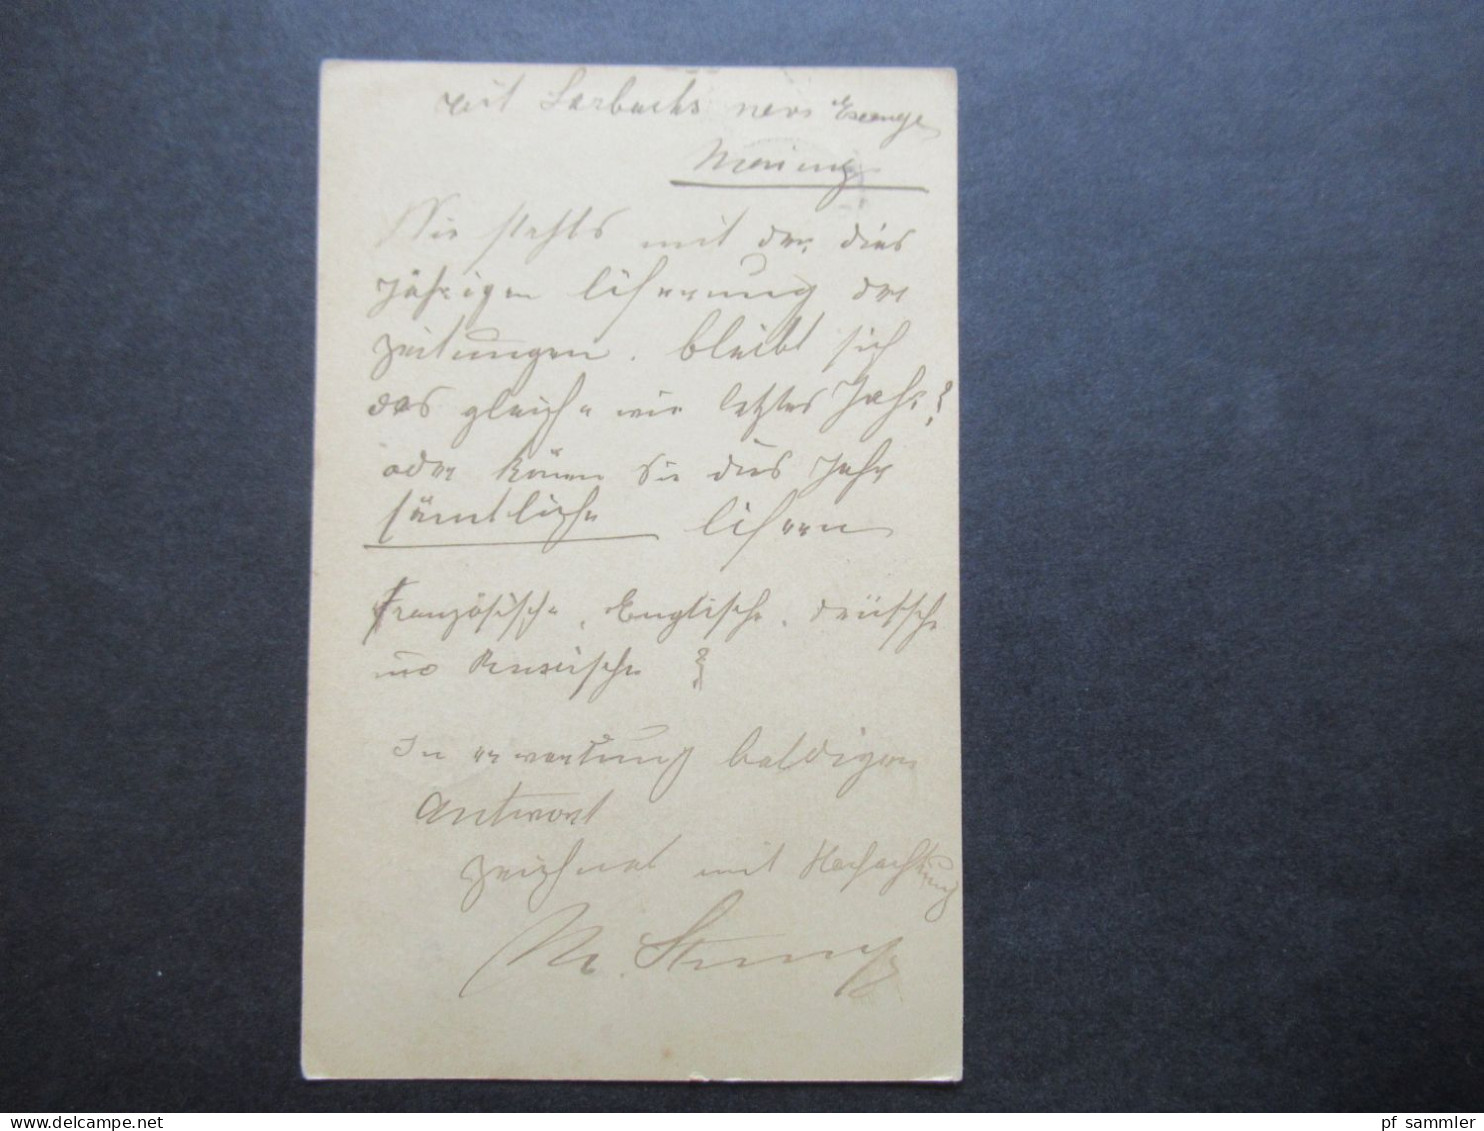 mit Sarbachs news Exange
Mainz
Wie stehts mit der dies
jährigen liferung der
zeitungen. bleibt sich
das gleiche wie letztes Jahr?
oder können Sie dies Jahr
sämtliche lifern
Französische, Englische, deütsche
und Russische?
In erwartung baldigen
Antwort
zeichnet mit Hochachtung
M. Stumpf
pf_sammler
delcampe.net